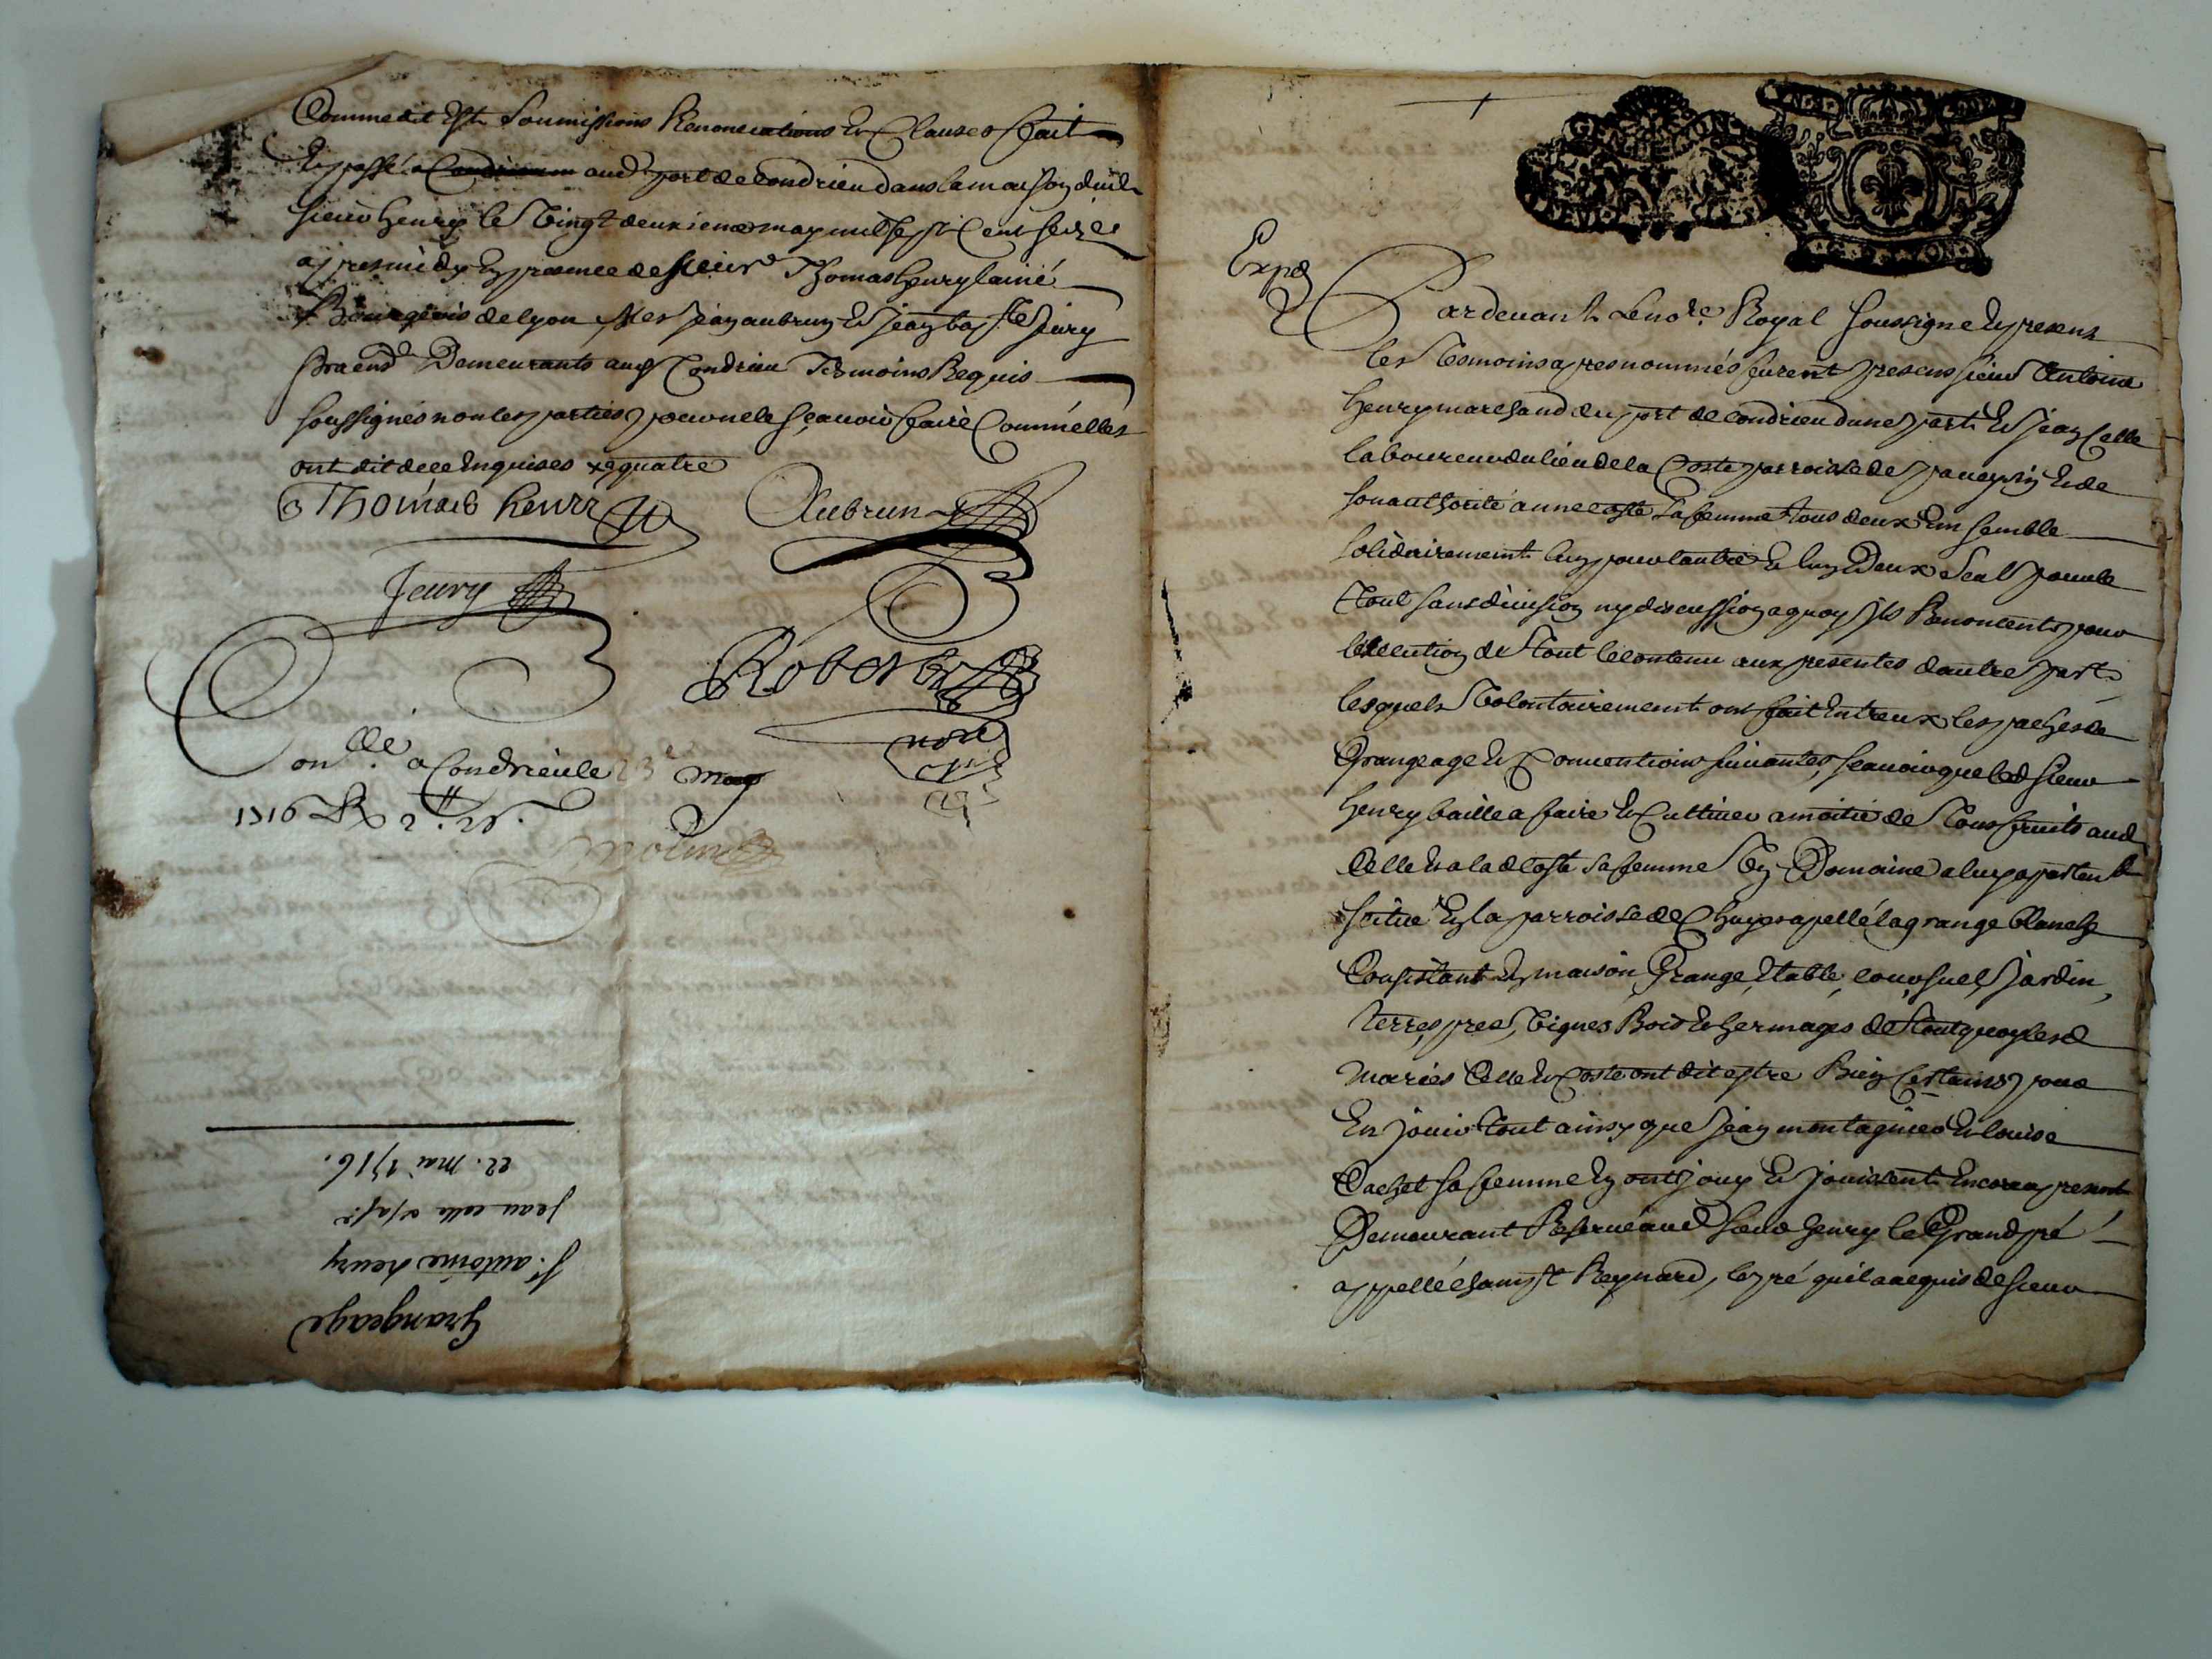 Comme dit Est Soumissions Renonciations Et Clauses fait
Et passé a aud port de Condrieu dans la maison dud
sieur henry le Vingt deuxieme may mil sept Cent seize
apres midy En presence de sieur Thomas henry lainé
Bourgeois de lyon Mes jean aubrun Et jean bap.te jeury
Demeurants aud Condrieu Tesmoins Requis
soussignés non les parties pour ne le sçauoir faire Comm'elles
ont dit de ce Enquises
Thomas henri
Aubrun
Jeury
Robert
no.re
Con.llé a Condrieu le 23e may
1716 R 2.# 2s.
Grangeage
Sr. antoine henry
jean celle & sa fe
22. mai 1716.
Exped
Pardeuant Le no.re Royal soussigné Et presents
les Tesmoins apres nommés furent presents sieur Antoine
henry marchand du port de condrieu d'une part Et jean Celle
laboureur du lieu de la Coste parroisse de pauezin Et de
son authorité anne coste sa femme tous deux Ensemble
solidairement lun pour lautre Et lun Deux seul pour le
Tout sans diuision ny discussion a quoy jls Renoncent pour
lexecution de tout le contenu aux presentes dautre part
lesquels Volontairement ont fait Entreux les paches de
Grangeage Et Conuentions suiuantes, scauoir que led sieur
henry baille a faire Et Cultiuer a moitié de Tous fruits aud
Celle Et a lad Coste sa femme Vn Domaine a luy appartenant
scitué En la parroisse de Chuyer apellé la grange blanche
Consistant En maison, Grange, Etable, cour, suel, jardin,
terres, pres, Vignes Bois Et hermages de Tout quoy lesd
mariés Celle Et Coste ont dit estre Bien Certains pour
En jouir Tout ainsy que jean montagnier Et louise
Cachet sa femme En ont jouy Et jouissent Encor a present
Demeurant Reserué aud sieur henry le Grand pré
appellé champt Reynard, le pré quil a acquis de sieur